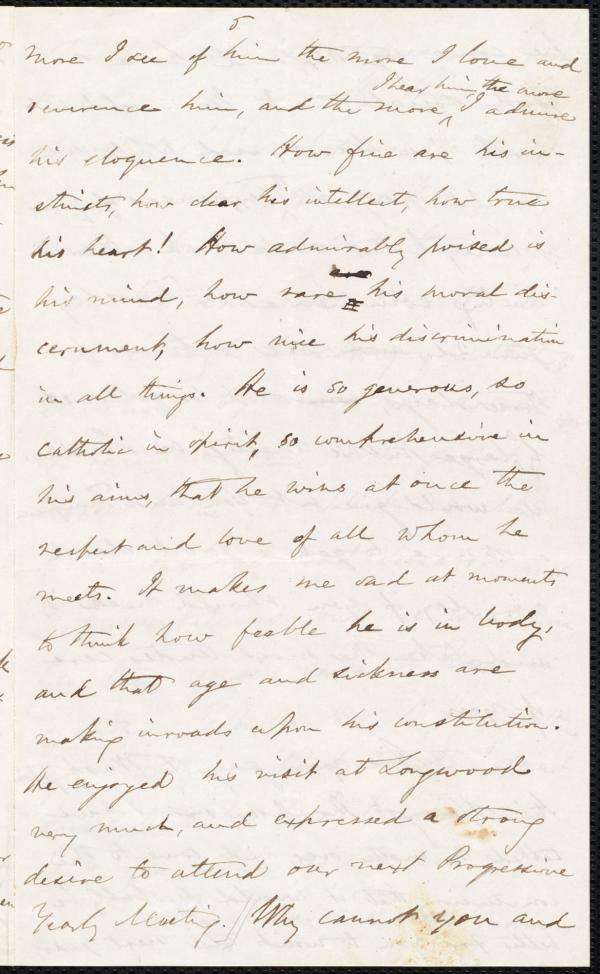 5
more I see of him the more I love and
I hear him, the more
reverence him, and the more ‸ I admire
his eloquence. How fine are his in-
stincts, how clear his intellect, how true
his heart! How admirably poised is
his mind, how rare is his moral dis-
cernment, how nice his discrimination
in all things. He is so generous, so
catholic in spirit, so comprehensive in
his aims, that he wins at once the
respect and love of all whom he
meets. It makes me sad at moments
to think how feeble he is in body,
and that age and sickness are
making inroads upon his constitution.
He enjoyed his visit at Longwood
very much, and expressed a strong
desire to attend our next Progressive
Yearly Meeting. // Why cannot you and